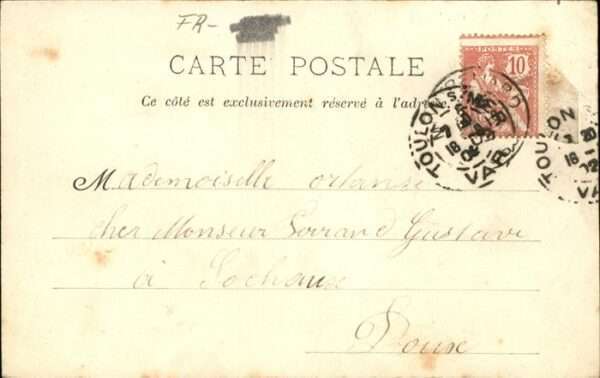 FR-
CARTE POSTALE
Ce côté est exclusivement réservé à l'adresse
POSTES
10
TOULON
VAR
TOULON
VA
Mademoiselle ortense
cher Monsieur Gustave
à Sochaux